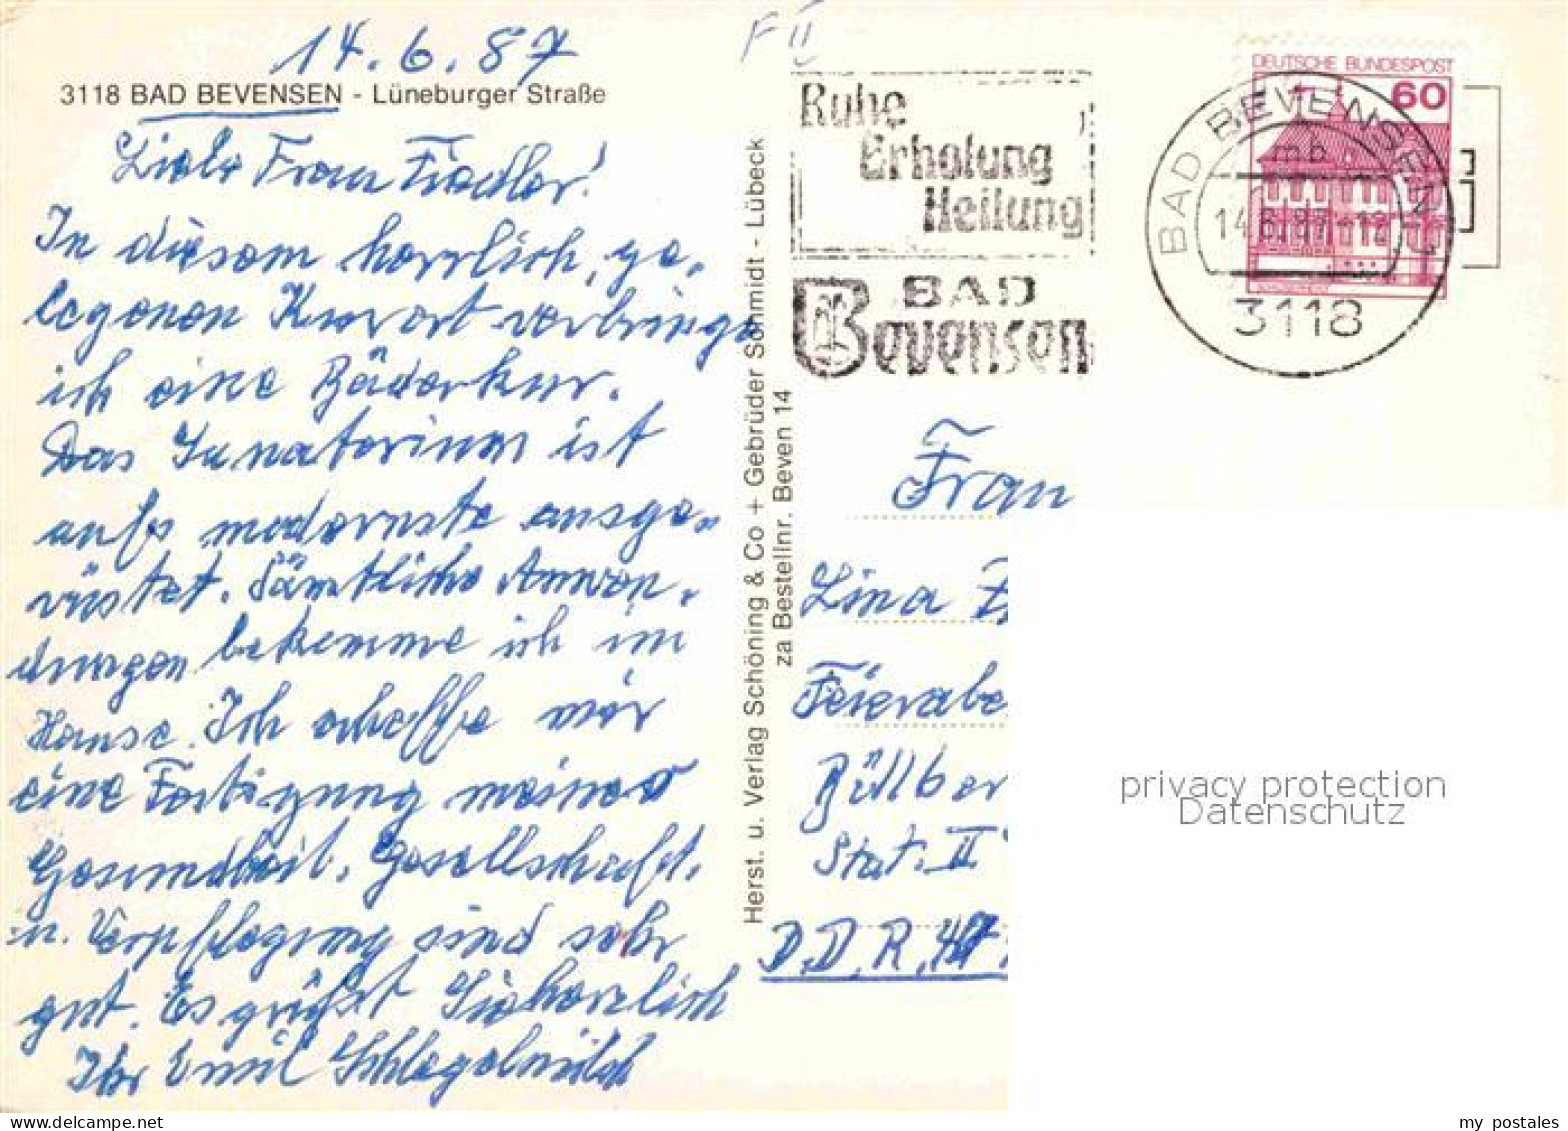 14.6.87
3118 BAD BEVENSEN - Lüneburger Straße
Liebe Frau Fiedler!
In diesem herrlich, ge-
legenen Kurort verbringe
ich eine Bäderkur.
Das Sanatorium ist
aufs modernste ausge-
rüstet. Sämtliche Anwen-
dungen bekomme ich im
Hause. Ich erhoffe mir
eine Festigung meiner
Gesundheit. Gesellschaft.
u. Verpflegung sind sehr
gut. Es grüßt Sie herzlich
Ihr Emil Schlegelmilch
Herst. u. Verlag Schöning & Co + Gebrüder Schmidt - Lübeck
za Bestellnr. Beven 14
F II
Ruhe
Erholung
Heilung
BAD
Bevensen
DEUTSCHE BUNDESPOST
60
BAD BEVENSEN
mb
14.6.87-12
3118
Frau
Lina
Feierabe
Stat. II
D.D.R.
privacy protection
Datenschutz
my postales